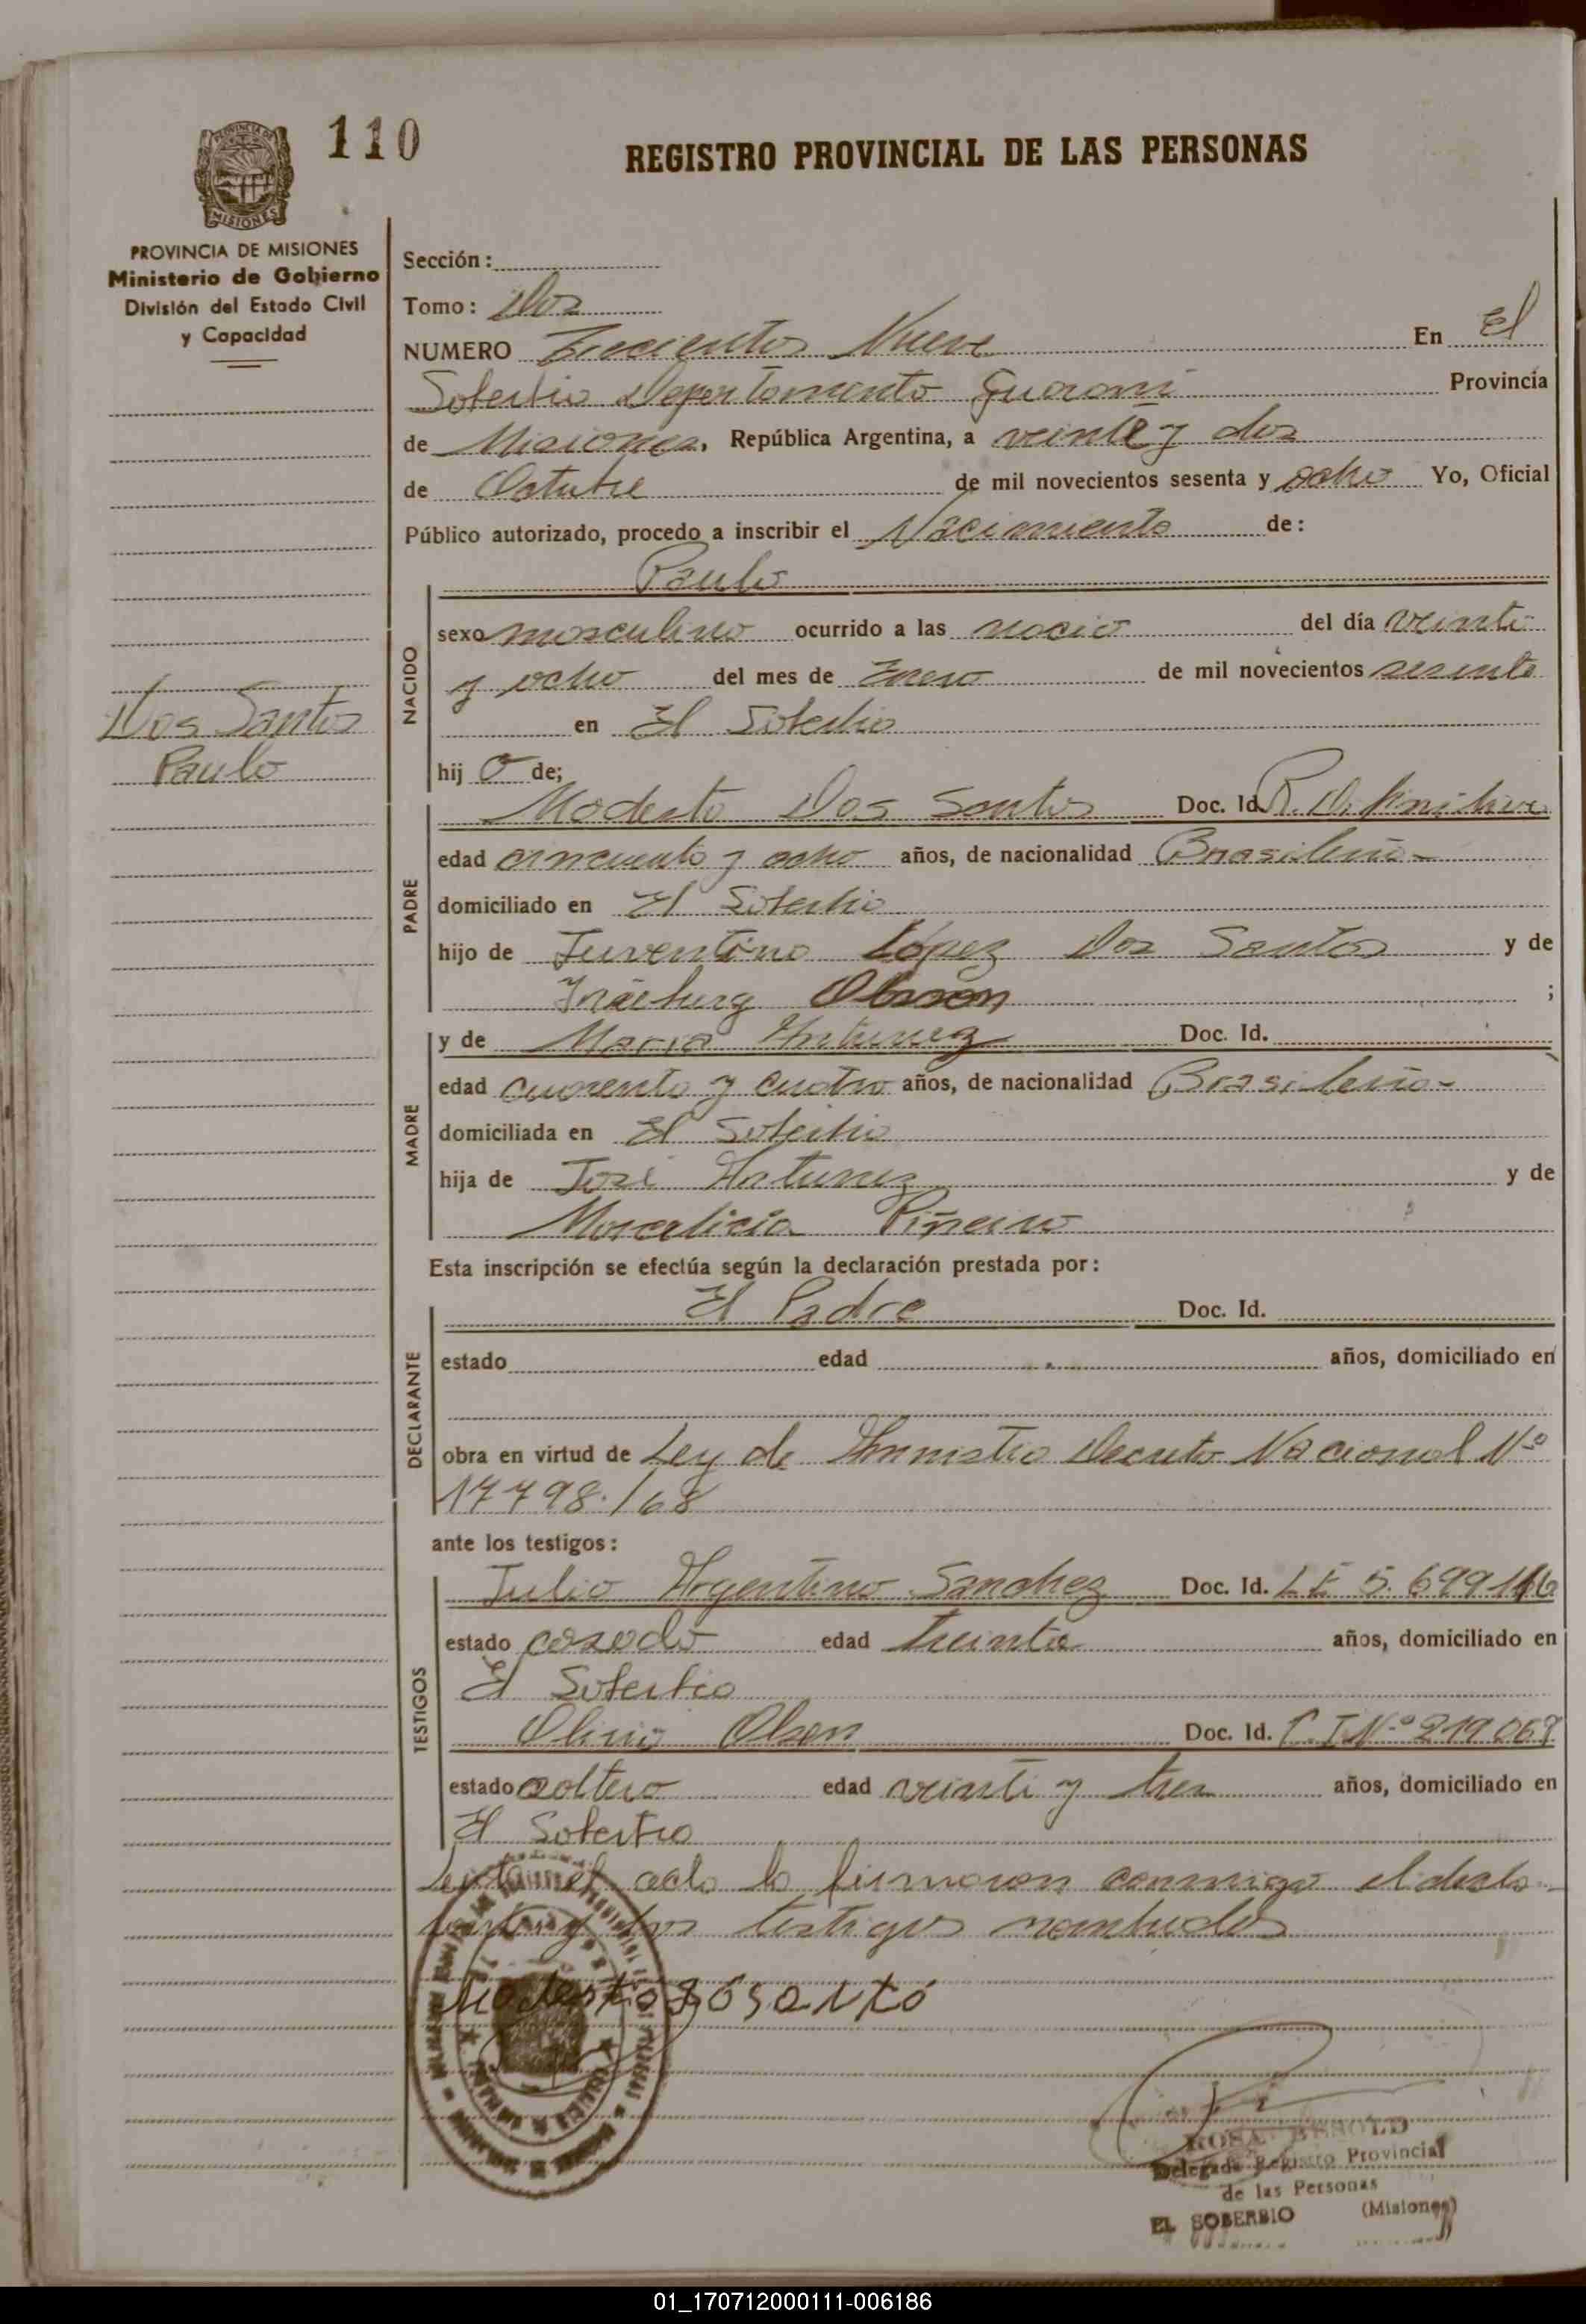 110
REGISTRO PROVINCIAL DE LAS PERSONAS
PROVINCIA DE MISIONES
PROVINCIA DE MISIONES
Ministerio de Gobierno
División del Estado Civil
y Capacidad
Dos Santos
Paulo
Sección:
Tomo: Dos
NUMERO Trecientos Nueve En El
Soberbio Departamento Guarani Provincia
de Misiones, República Argentina, a veinte y dos
de Octubre de mil novecientos sesenta y ocho Yo, Oficial
Público autorizado, procedo a inscribir el Nacimiento de:
Paulo
NACIDO
sexo masculino ocurrido a las nacio del día veinte
y ocho del mes de Enero de mil novecientos sesenta
en El Soberbio
hij o de;
PADRE
Modesto Dos Santos Doc. Id. R. Definitiva
edad cincuenta y ocho años, de nacionalidad Brasileño-
domiciliado en El Soberbio
hijo de Juventino López Dos Santos y de
Olsson ;
MADRE
y de Maria Antunez Doc. Id.
edad cuarenta y cuatro años, de nacionalidad Brasileña-
domiciliada en El Soberbio
hija de José Antunez y de
Piñeiro
Esta inscripción se efectúa según la declaración prestada por:
DECLARANTE
El Padre Doc. Id.
estado edad años, domiciliado en
obra en virtud de Ley de Amnistia Decreto Nacional Nº
17798./68
ante los testigos:
TESTIGOS
Julio Argentino Sanchez Doc. Id. L E 5.699.116
estado casado edad treinta años, domiciliado en
El Soberbio
Olsen Doc. Id. C.I.Nº 219.067
estado soltero edad veinti y tres años, domiciliado en
El Soberbio
Leida el acta la firmaron conmigo el decla-
rante y los testigos nombrados
Modesto
ROSA
Delegada Registro Provincial
de las Personas
EL SOBERBIO (Misiones)
01_170712000111-006186